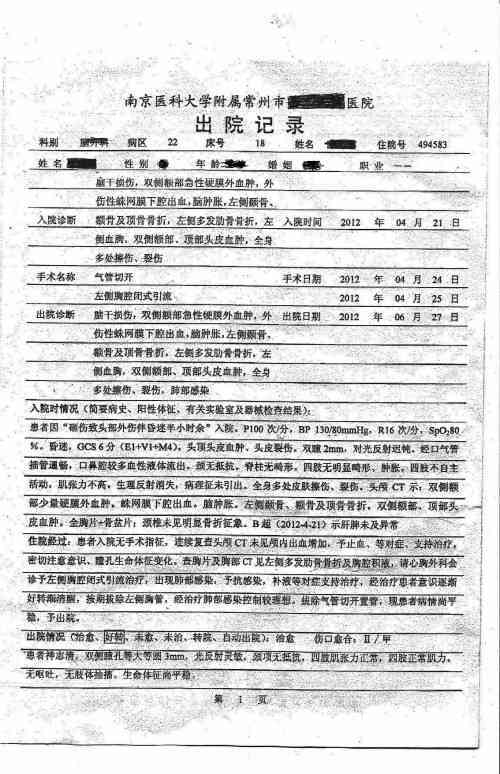 南京医科大学附属常州市 医院
出院记录
科别 脑外科 病区 22 床号 18 姓名 住院号 494583
姓名 性别 年龄 婚姻 职业 ——
脑干损伤，双侧额部急性硬膜外血肿，外
伤性蛛网膜下腔出血，脑肿胀，左侧颞骨、
入院诊断 额骨及顶骨骨折，左侧多发肋骨骨折，左 入院时间 2012 年 04 月 21 日
侧血胸，双侧额部、顶部头皮血肿，全身
多处擦伤、裂伤
手术名称 气管切开 手术日期 2012 年 04 月 24 日
左侧胸腔闭式引流 2012 年 04 月 25 日
出院诊断 脑干损伤，双侧额部急性硬膜外血肿，外 出院日期 2012 年 06 月 27 日
伤性蛛网膜下腔出血，脑肿胀，左侧颞骨、
额骨及顶骨骨折，左侧多发肋骨骨折，左
侧血胸，双侧额部、顶部头皮血肿，全身
多处擦伤、裂伤，肺部感染
入院时情况（简要病史、阳性体征、有关实验室及器械检查结果）：
患者因“砸伤致头部外伤伴昏迷半小时余”入院。P100 次/分，BP 130/80mmHg，R16 次/分，SpO₂80
%。昏迷，GCS 6 分（E1+V1+M4），头顶头皮血肿、头皮裂伤，双瞳 2mm，对光反射迟钝，经口气管
插管通畅，口鼻腔较多血性液体流出，颈无抵抗，脊柱无畸形，四肢无明显畸形、肿胀，四肢不自主
活动，肌张力不高，生理反射消失，病理征未引出。全身多处皮肤擦伤、裂伤。头颅 CT 示：双侧额
部少量硬膜外血肿，蛛网膜下腔出血，脑肿胀，左侧颞骨、额骨及顶骨骨折，双侧额部、顶部头
皮血肿。全胸片+骨盆片：颈椎未见明显骨折征象。B 超（2012-4-21）示肝脾未及异常
住院经过：患者入院无手术指征，连续复查头颅 CT 未见颅内出血增加，予止血、等对症、支持治疗，
密切注意意识、瞳孔生命体征变化。查胸片及胸部 CT 见左侧多发肋骨骨折及胸腔积液，请心胸外科会
诊予左侧胸腔闭式引流治疗，出现肺部感染，予抗感染，补液等对症支持治疗，经治疗患者意识逐渐
好转渐清醒，按期拔除左侧胸管，经治疗肺部感染控制较理想，拔除气管切开置管，现患者病情尚平
稳，予出院。
出院情况（治愈、好转、未愈、未治、转院、自动出院）：治愈 伤口愈合：Ⅱ／甲
患者神志清，双侧瞳孔等大等圆 3mm，光反射灵敏，颈项无抵抗，四肢肌张力正常，四肢正常肌力。
无呕吐，无肢体抽搐，生命体征尚平稳。
第 1 页